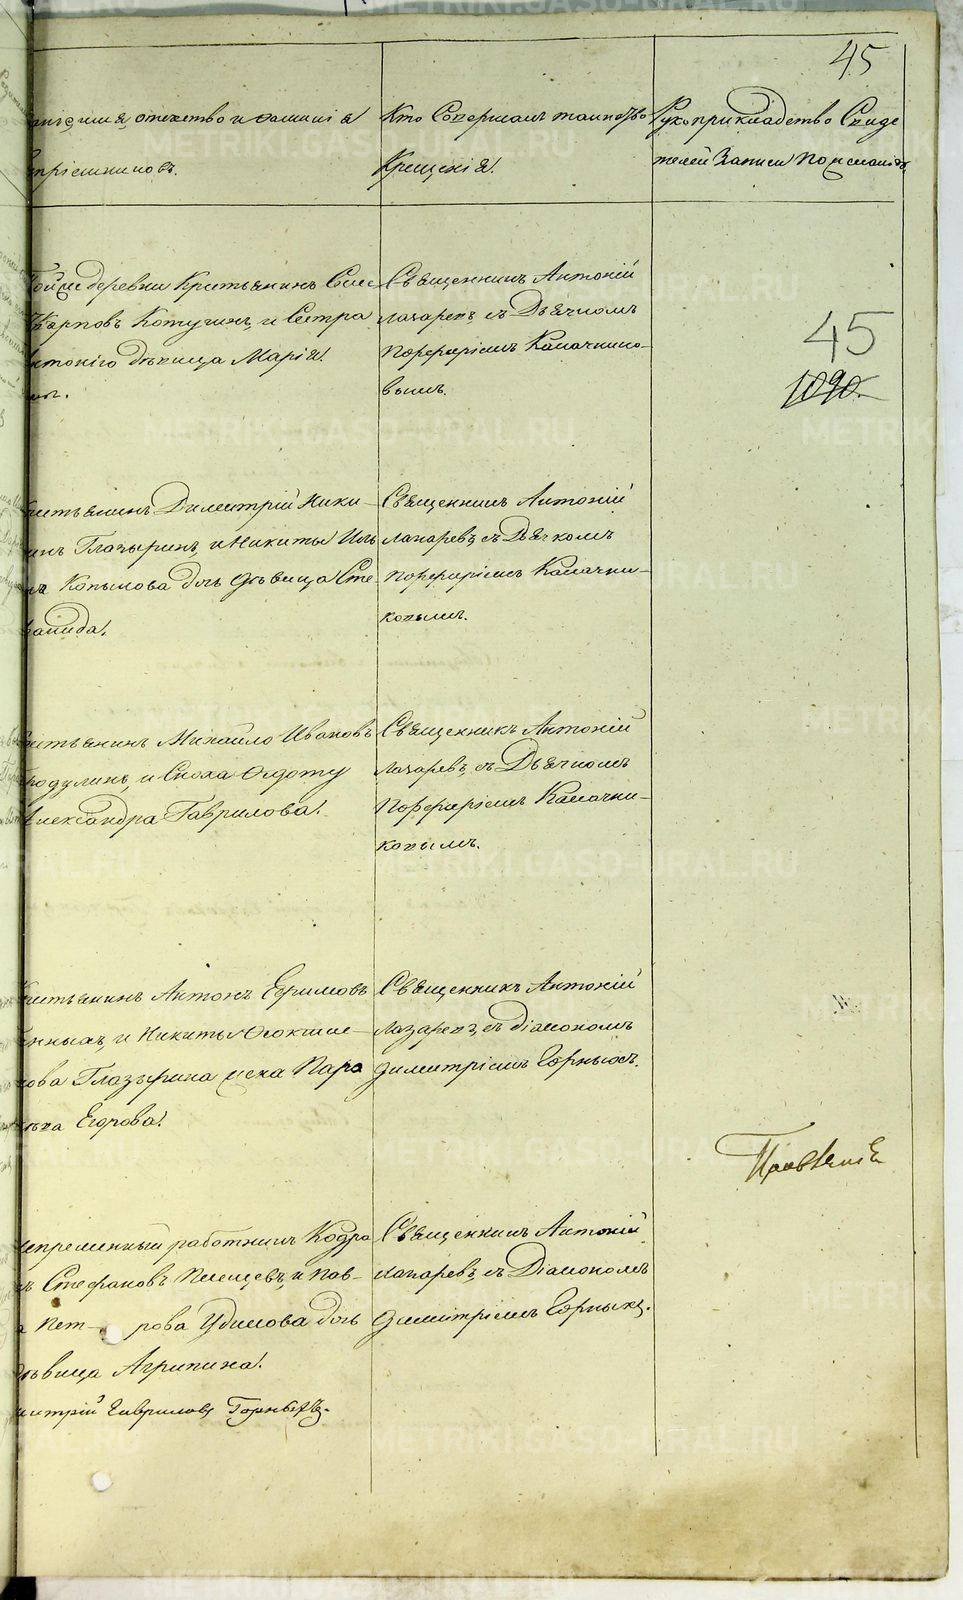 45
имя, отчество и фамилія
воспріемниковъ.
Кто Совершалъ таинство
Крещенія.
Рукоприкладство Свиде
телей Записи По желанію
Тойже деревни Крестьянинъ
Карповъ Котугинъ, и Сестра
Антонія дѣвица Марія.
Священникъ Антоній
Лазаревъ съ Дьячкомъ
Порфиріемъ Калачнико-
вымъ.
45
1090.
Крестьянинъ Димитрій Ники-
инъ Глазыринъ, и Никиты Иль
на Копылова дочь дѣвица Сте
панида.
Священникъ Антоній
Лазаревъ, съ Дьячкомъ
Порфиріемъ Калачни-
ковымъ.
Крестьянинъ Михайло Ивановъ
Бродулинъ, и Сноха Федоту
Александра Гаврилова.
Священникъ Антоній
Лазаревъ, съ Дьячкомъ
Порфиріемъ Калачни-
ковымъ.
Крестьянинъ Антонъ Ефимовъ
и Никиты
Глазырина жена Пара
Егорова.
Священникъ Антоній
Лазаревъ, съ Діакономъ
Димитріемъ Горныхъ.
Непременный работникъ Кодра
Стефановъ Пелецевъ, и Пав-
а Пет- рова Удилова дочь
дѣвица Агрипина.
Димитрій Гавриловъ Горныхъ.
Священникъ Антоній
Лазаревъ, съ Діакономъ
Димитріемъ Горныхъ.
METRIKI.GASO-URAL.RU